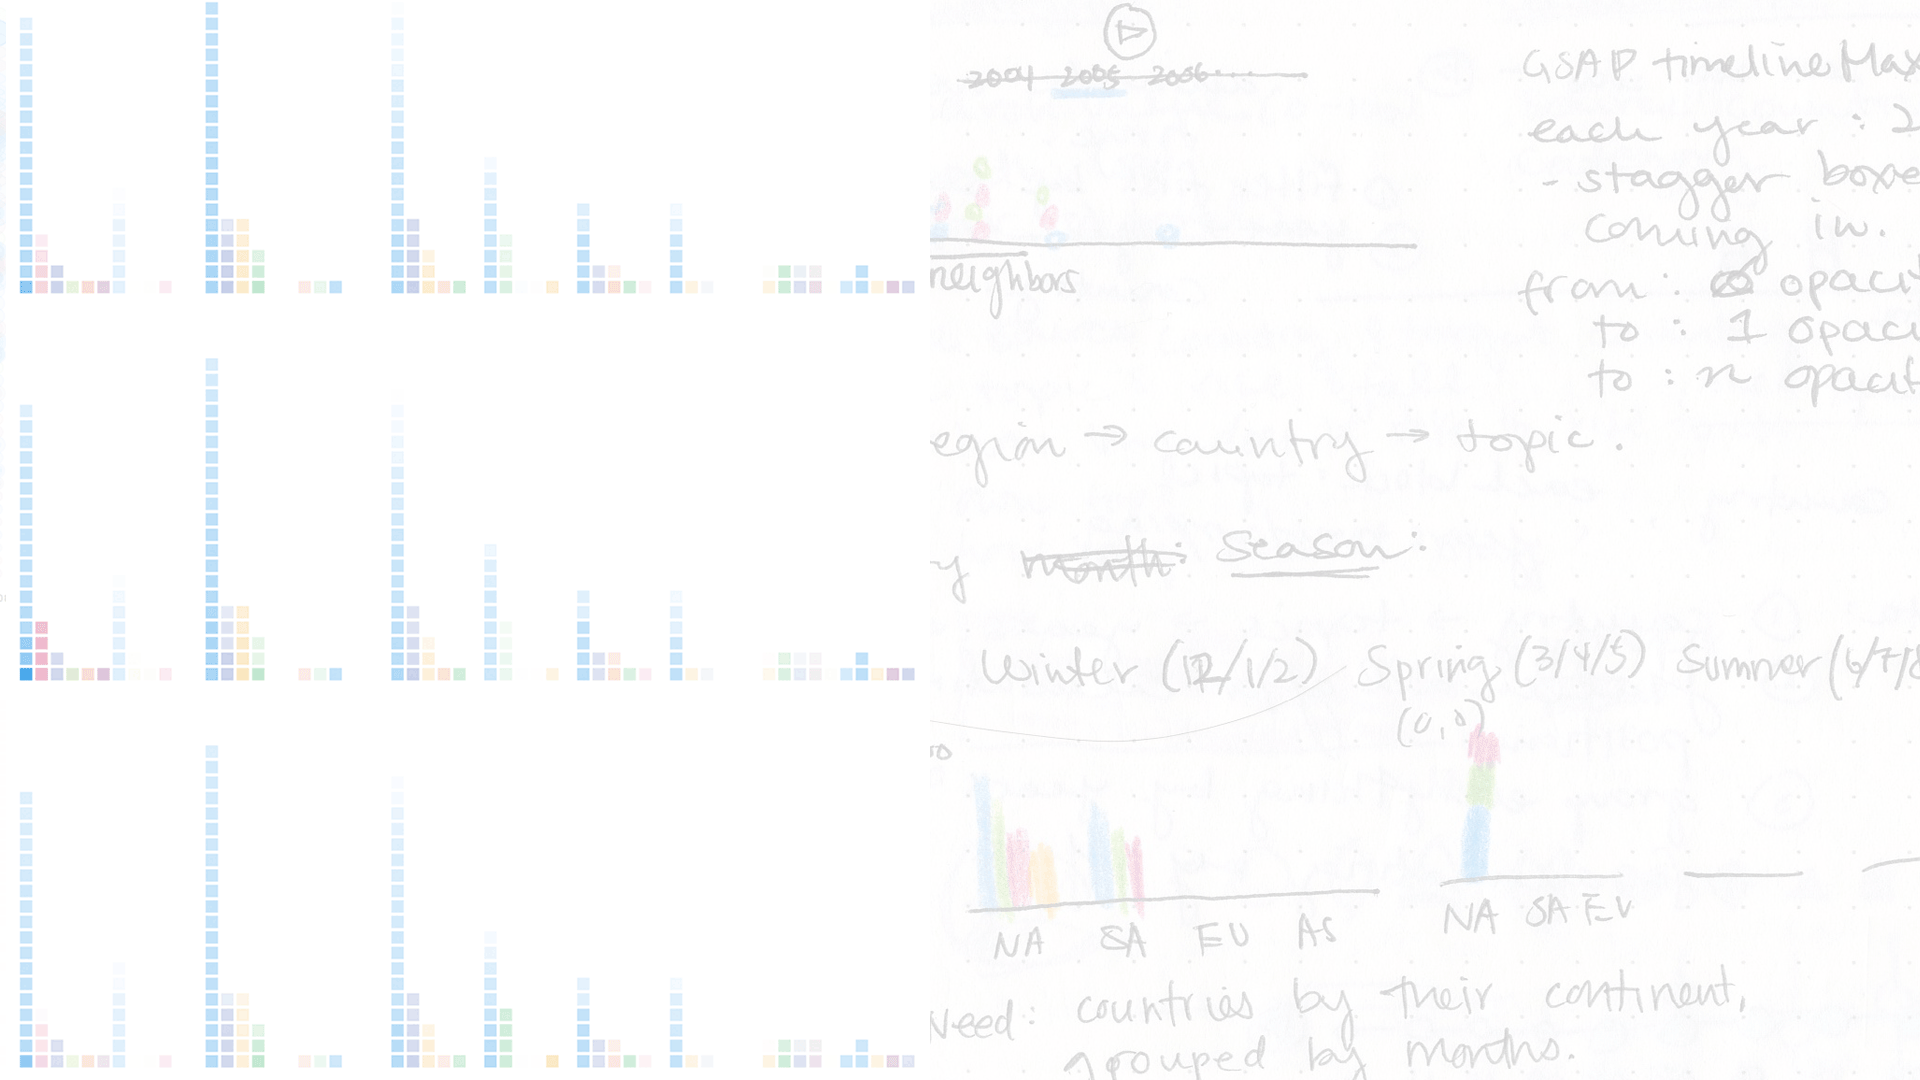 2004 2005 2006....
GSAP timelineMax
each year : 2
- stagger boxe
coming in.
neighbors
from : 0 opacit
to : 1 opaci
to : n opacit
egion → country → topic.
y month: Season:
Winter (12/1/2) Spring (3/4/5) Summer (6/7/8
(0,0)
NA SA EU AS
NA SA EU
Need: countries by their continent,
grouped by months.